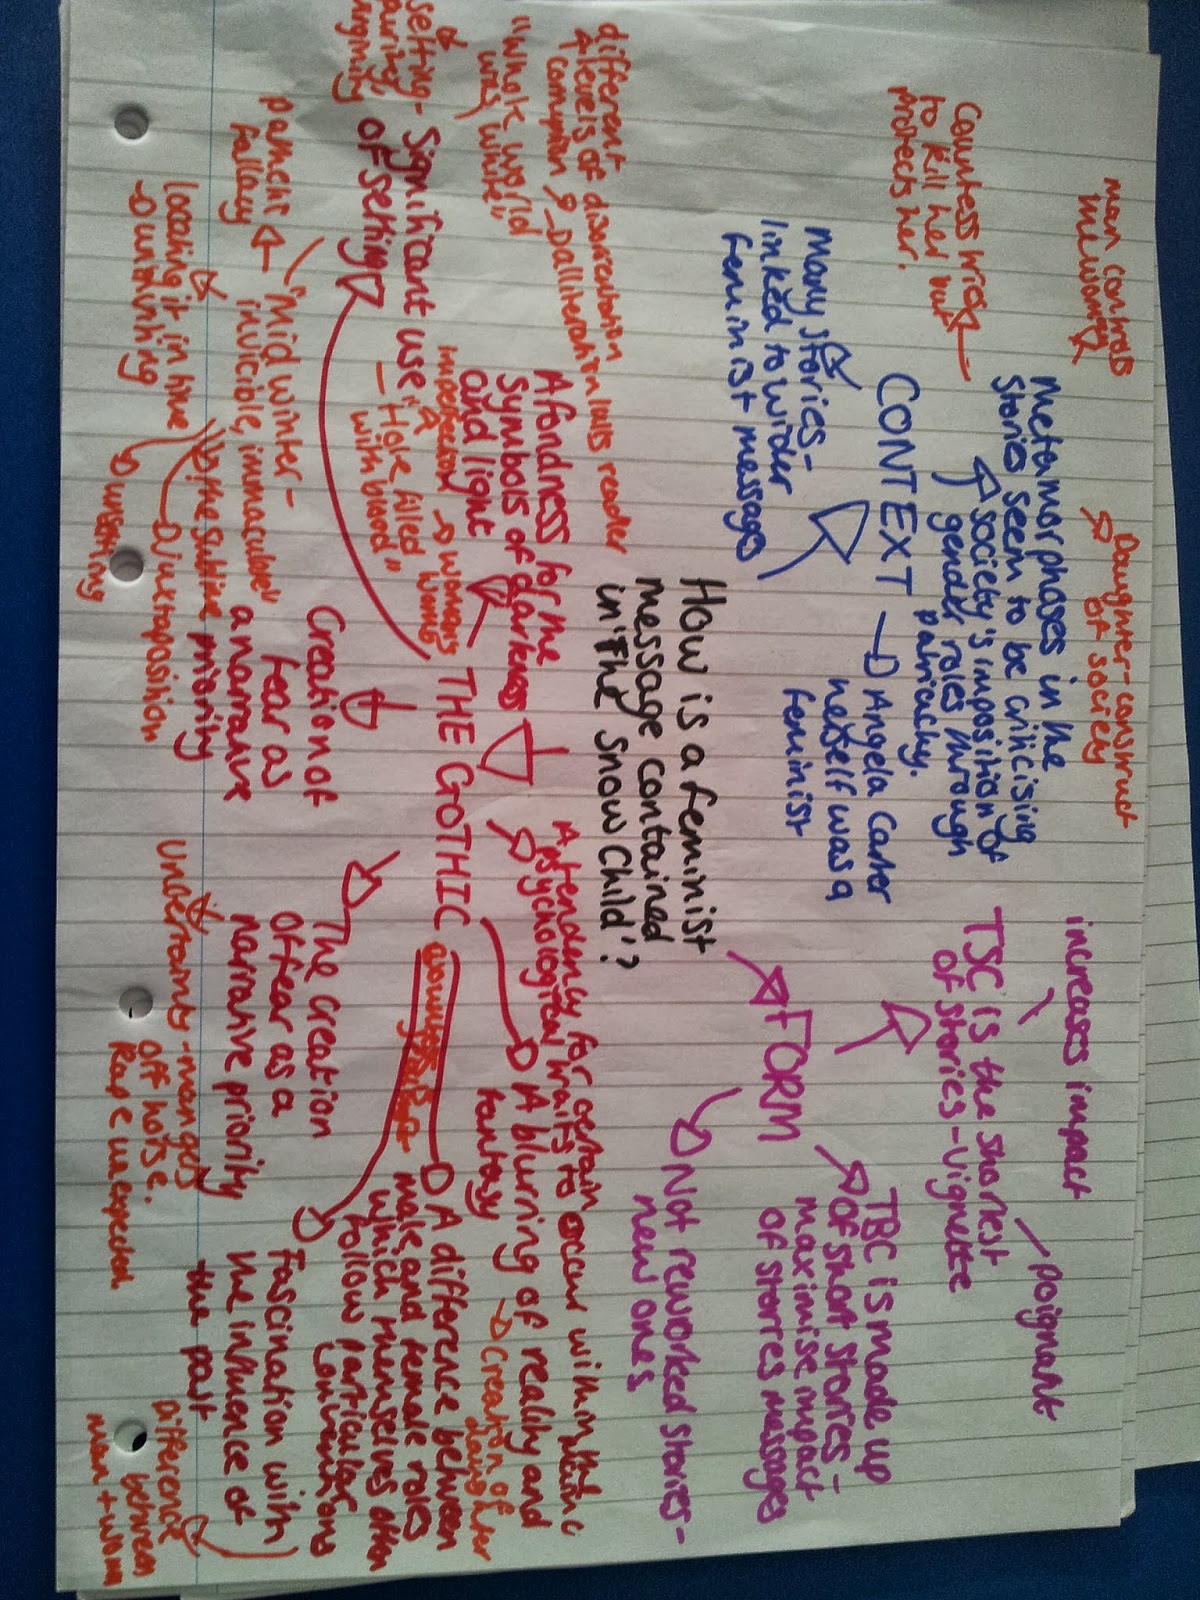 How is a feminist
message contained
in 'The Snow Child'?
CONTEXT
Angela Carter
herself was a
feminist
many stories -
linked to wider
feminist message
Metamorphases in the
Stories seem to be criticising
society's imposition of
gender roles through
patriachy.
man controls
the woman
Daughter - construct
of society
Countess tries
to kill her but
protects her.
FORM
TSC is the shortest
of stories - vignette
increases impact
poignant
TBC is made up
of short stories -
maximise impact
of stories messages
Not reworked stories -
new ones
THE GOTHIC
A fondness for the
symbols of darkness
and light
imperfection
women's
"Hole filled
with blood"
different
levels of disorientation
corruption
alliteration lulls reader
"Whole world
was white"
Significant use
of setting
setting -
"Midwinter -
invicible, immaculate"
pathetic
fallacy
locating it in time
Dunstinting
unstinting
juxtaposition
the sublime
Creation of
fear as
a narrative
priority
The creation
of fear as a
narrative priority
Uncertainty - mangers
off horse.
Rape unexpected
A tendency for certain
psychological traits to occur within the
A blurring of reality and
fantasy
Creation of
daughter
A difference between
male and female roles
which themselves often
follow particular
conventions
Fascination with
the influence of
the past
difference between
man + woman